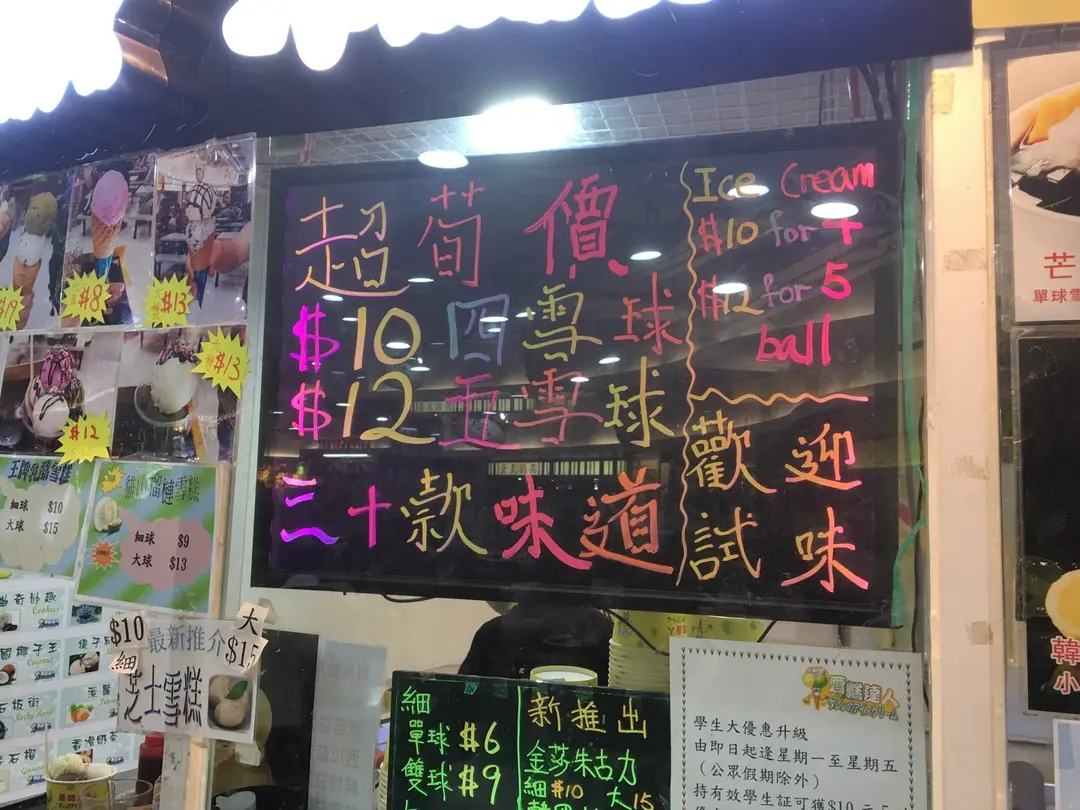 超荀價
$10四雪球
$12五雪球
三十款味道
Ice Cream
$10 for 4
$12 for 5
ball
歡迎
試味
$8
$13
$13
$12
王牌乳酪雪糕
細球 $10
大球 $15
貓山榴槤雪糕
細球 $9
大球 $13
最新推介
$10
細
大
$15
芝士雪糕
Cookies
Coconut
Rocky Road
香滑奶茶
細
單球 $6
雙球 $9
新推出
金莎朱古力
細 $10 大15
雪糕達人
學生大優惠升級
由即日起逢星期一至星期五
(公眾假期除外)
持有效學生証可獲$10 五
芒
單球雪
韓
小